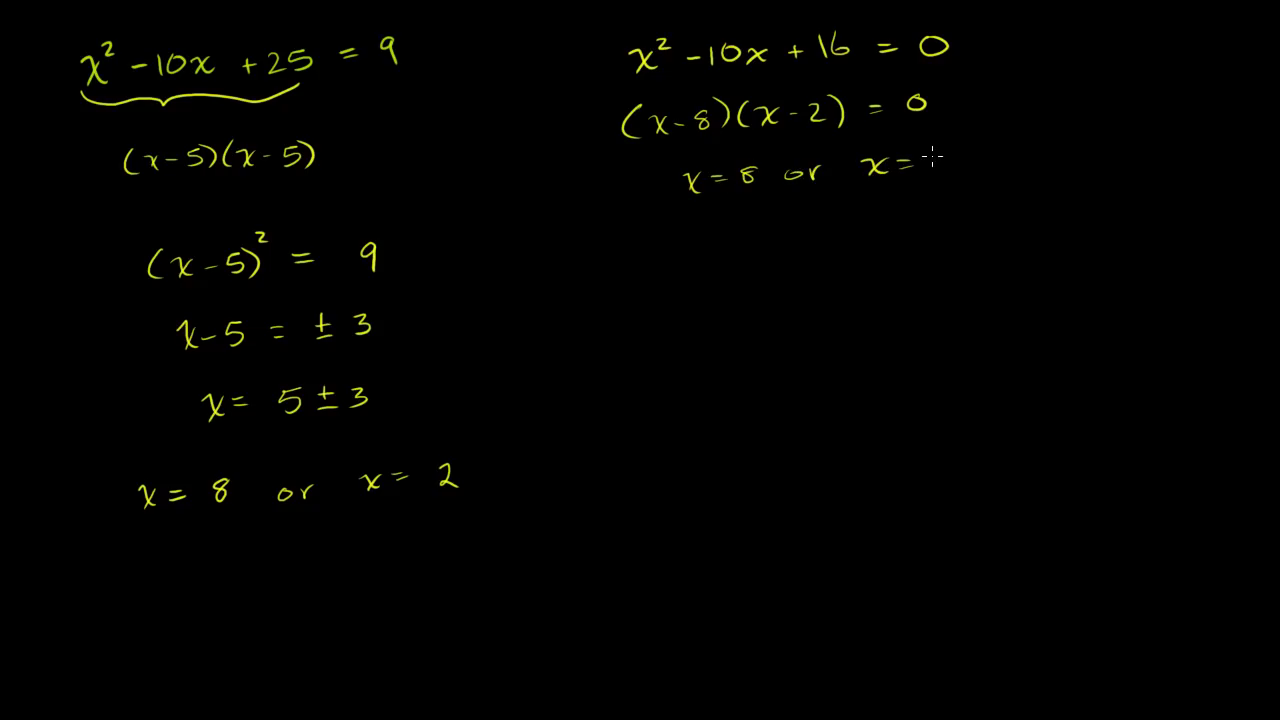 x² - 10x + 25 = 9
(x - 5)(x - 5)
(x - 5)² = 9
x - 5 = ± 3
x = 5 ± 3
x = 8 or x = 2
x² - 10x + 16 = 0
(x - 8)(x - 2) = 0
x = 8 or x =